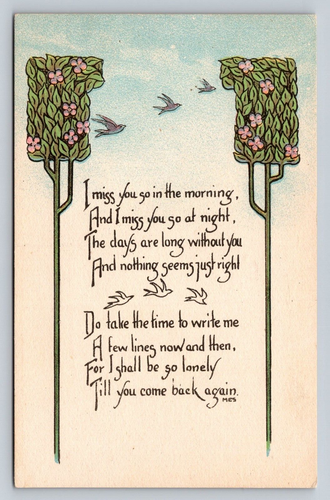 I miss you so in the morning,
And I miss you so at night,
The days are long without you
And nothing seems just right
Do take the time to write me
A few lines now and then,
For I shall be so lonely
Till you come back again.
MES